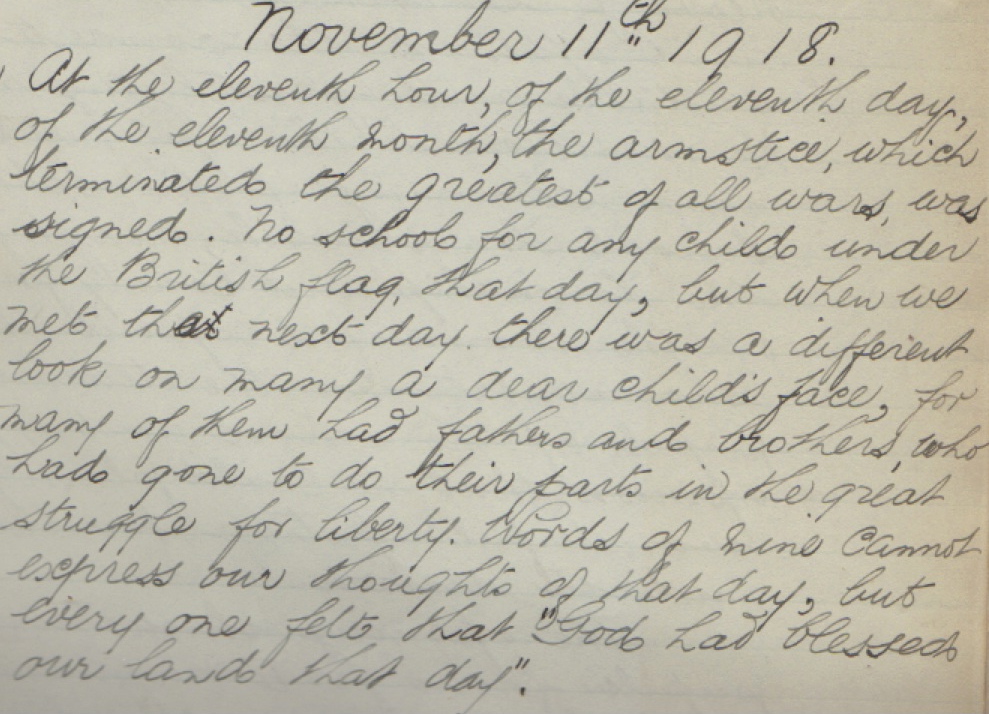 November 11th 1918.
At the eleventh hour, of the eleventh day,
of the eleventh month, the armstice, which
terminated the greatest of all wars, was
signed. No school for any child under
the British flag, that day, but when we
met that next day there was a different
look on many a dear child's face, for
many of them had fathers and brothers, who
had gone to do their parts in the great
struggle for liberty. Words of mine cannot
express our thoughts of that day, but
every one felt that "God had blessed
our land that day".